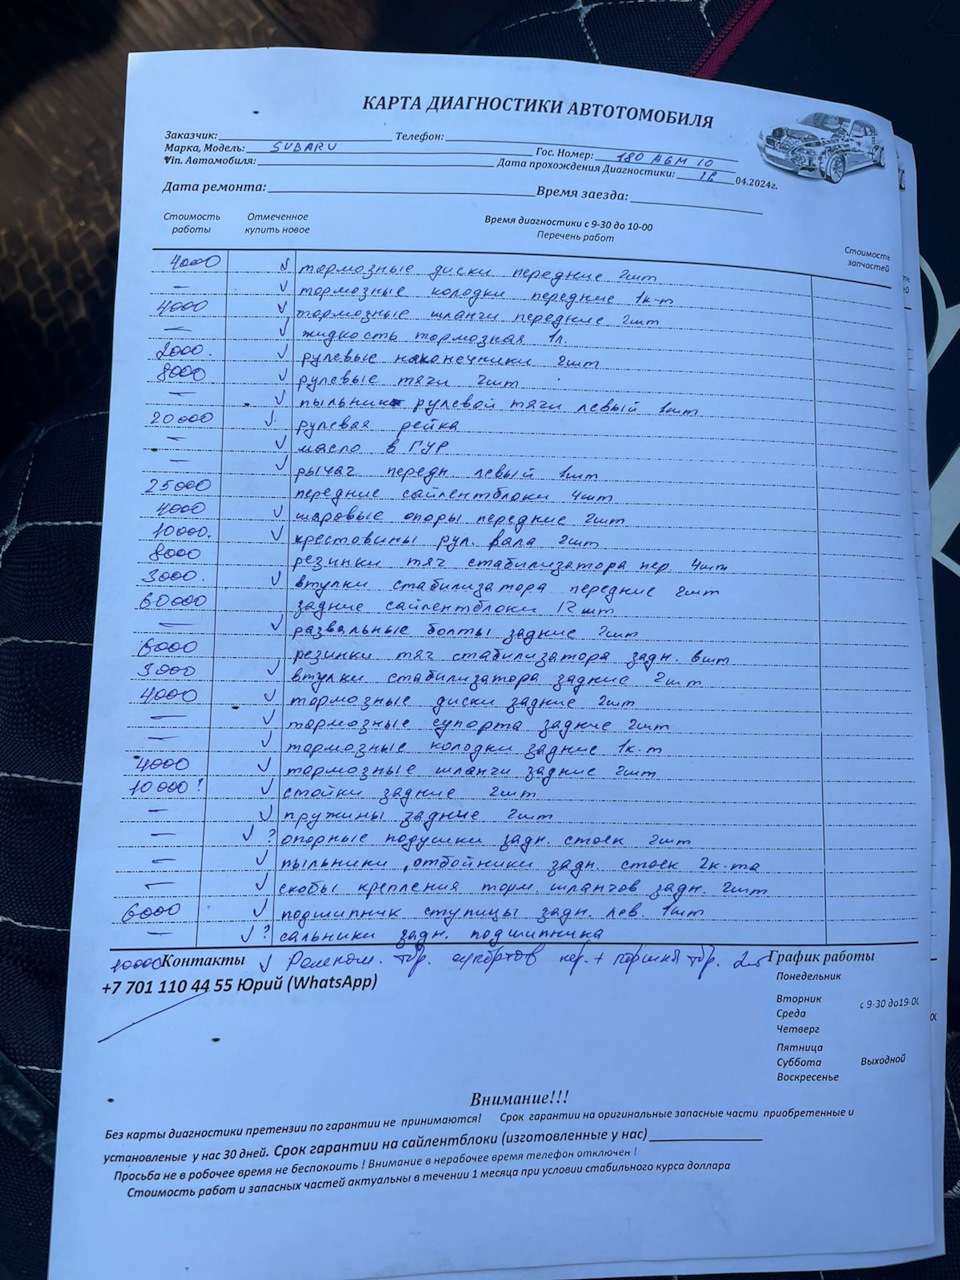 КАРТА ДИАГНОСТИКИ АВТОТОМОБИЛЯ
Заказчик: Телефон:
Марка, Модель: SUBARU Гос. Номер: 180 AGM 10
Vin. Автомобиля: Дата прохождения Диагностики: 16 04.2024г.
Дата ремонта: Время заезда:
Стоимость работы Отмеченное купить новое Время диагностики с 9-30 до 10-00 Перечень работ Стоимость запчастей
4000 ✓ тормозные диски передние 2шт
— ✓ тормозные колодки передние 1к-т
4000 ✓ тормозные шланги передние 2шт
— ✓ жидкость тормозная 1л.
2000. ✓ рулевые наконечники 2шт
8000 ✓ рулевые тяги 2шт
— ✓ пыльник рулевой тяги левый 1шт
20000 ✓ рулевая рейка
— ✓ масло в ГУР
— ✓ рычаг передн. левый 1шт
25000 передние сайлентблоки 4шт
4000 ✓ шаровые опоры передние 2шт
10000. ✓ крестовины рул. вала 2шт
8000 резинки тяг стабилизатора пер. 4шт
3000. ✓ втулки стабилизатора передние 2шт
60000 задние сайлентблоки 12шт
— ✓ развальные болты задние 2шт
6000 резинки тяг стабилизатора задн. 8шт
3000 ✓ втулки стабилизатора задние 2шт
4000 ✓ тормозные диски задние 2шт
— ✓ тормозные супорта задние 2шт
— ✓ тормозные колодки задние 1к-т
4000 ✓ тормозные шланги задние 2шт
10000? ✓ стойки задние 2шт
— ✓ пружины задние 2шт
— ✓? опорные подушки задн. стоек 2шт
— ✓ пыльники, отбойники задн. стоек 2к-та
— ✓ скобы крепления торм. шлангов задн. 2шт
6000 ✓ подшипник ступицы задн. лев. 1шт
— ✓? сальники задн. подшипника
10000 ✓ Ремком. тор. супортов пер. + поршня тор. 2
Контакты
+7 701 110 44 55 Юрий (WhatsApp)
График работы
Понедельник
Вторник
Среда с 9-30 до19-00
Четверг
Пятница
Суббота Выходной
Воскресенье
Внимание!!!
Без карты диагностики претензии по гарантии не принимаются! Срок гарантии на оригинальные запасные части приобретенные и
установленые у нас 30 дней. Срок гарантии на сайлентблоки (изготовленные у нас)
Просьба не в рабочее время не беспокоить ! Внимание в нерабочее время телефон отключен !
Стоимость работ и запасных частей актуальны в течении 1 месяца при условии стабильного курса доллара